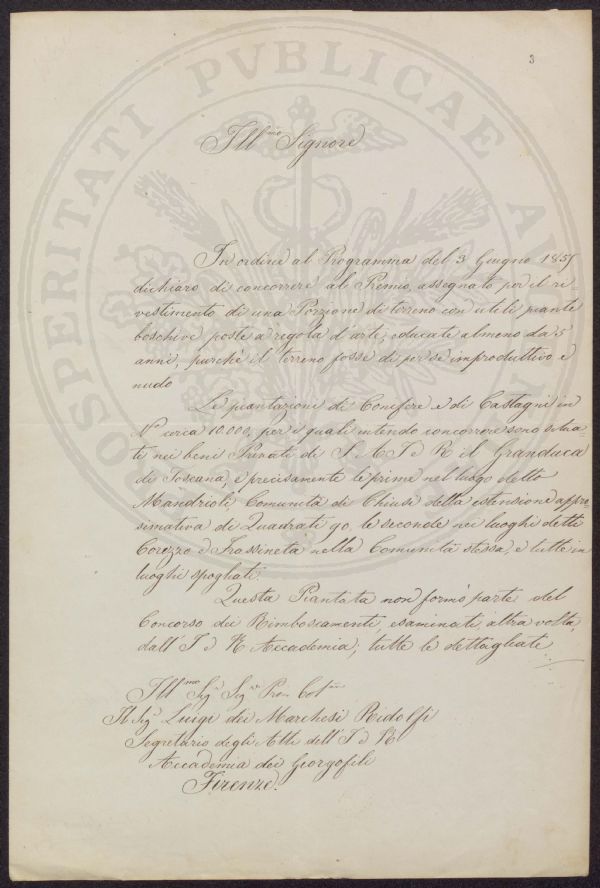 3
PROSPERITATI PVBLICAE AV
Ill.mo Signore
In ordine al Programma del 3 Giugno 1857
dichiaro di concorrere al Premio, assegnato per il ri-
vestimento di una Porzione di terreno con utili piante
boschive poste a regola d'arte, educate almeno da 5
anni, purchè il terreno fosse di per sè improduttivo e
nudo
Le piantazioni di Conifere e di Castagni in
N.o circa 10.000, per i quali intendo concorrere sono situa-
te nei beni Privati di S. A. I. e R. il Granduca
di Toscana, e precisamente le prime nel luogo detto
Mandrioli Comunità di Chiusi della estensione appros-
simativa di Quadrati 90, le seconde nei luoghi detti
Corezzo e Frassineta nella Comunità stessa, e tutte in
luoghi spogliati.
Questa Piantata non formò parte del
Concorso dei Rimboscamenti, esaminati altra volta
dall' I. e R. Accademia; tutte le dettagliate
Ill.mo Sig.r Sig.r Pron. Col.mo
Il Sig.r Luigi dei Marchesi Ridolfi
Segretario degli Atti dell' I. e R.
Accademia dei Georgofili
Firenze.